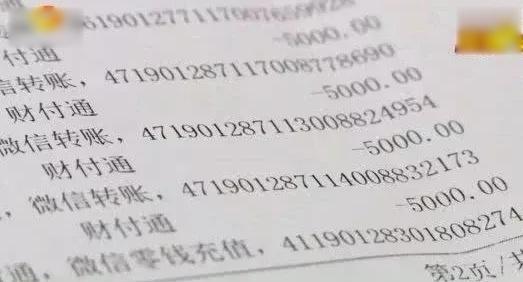 619012771170076599028
-5000.00
微信转账，4719012871117008778690
财付通
-5000.00
微信转账，4719012871113008824954
财付通
-5000.00
，微信转账，4719012871114008832173
财付通
-5000.00
通，微信零钱充值，4119012830180827​4
第2页/共